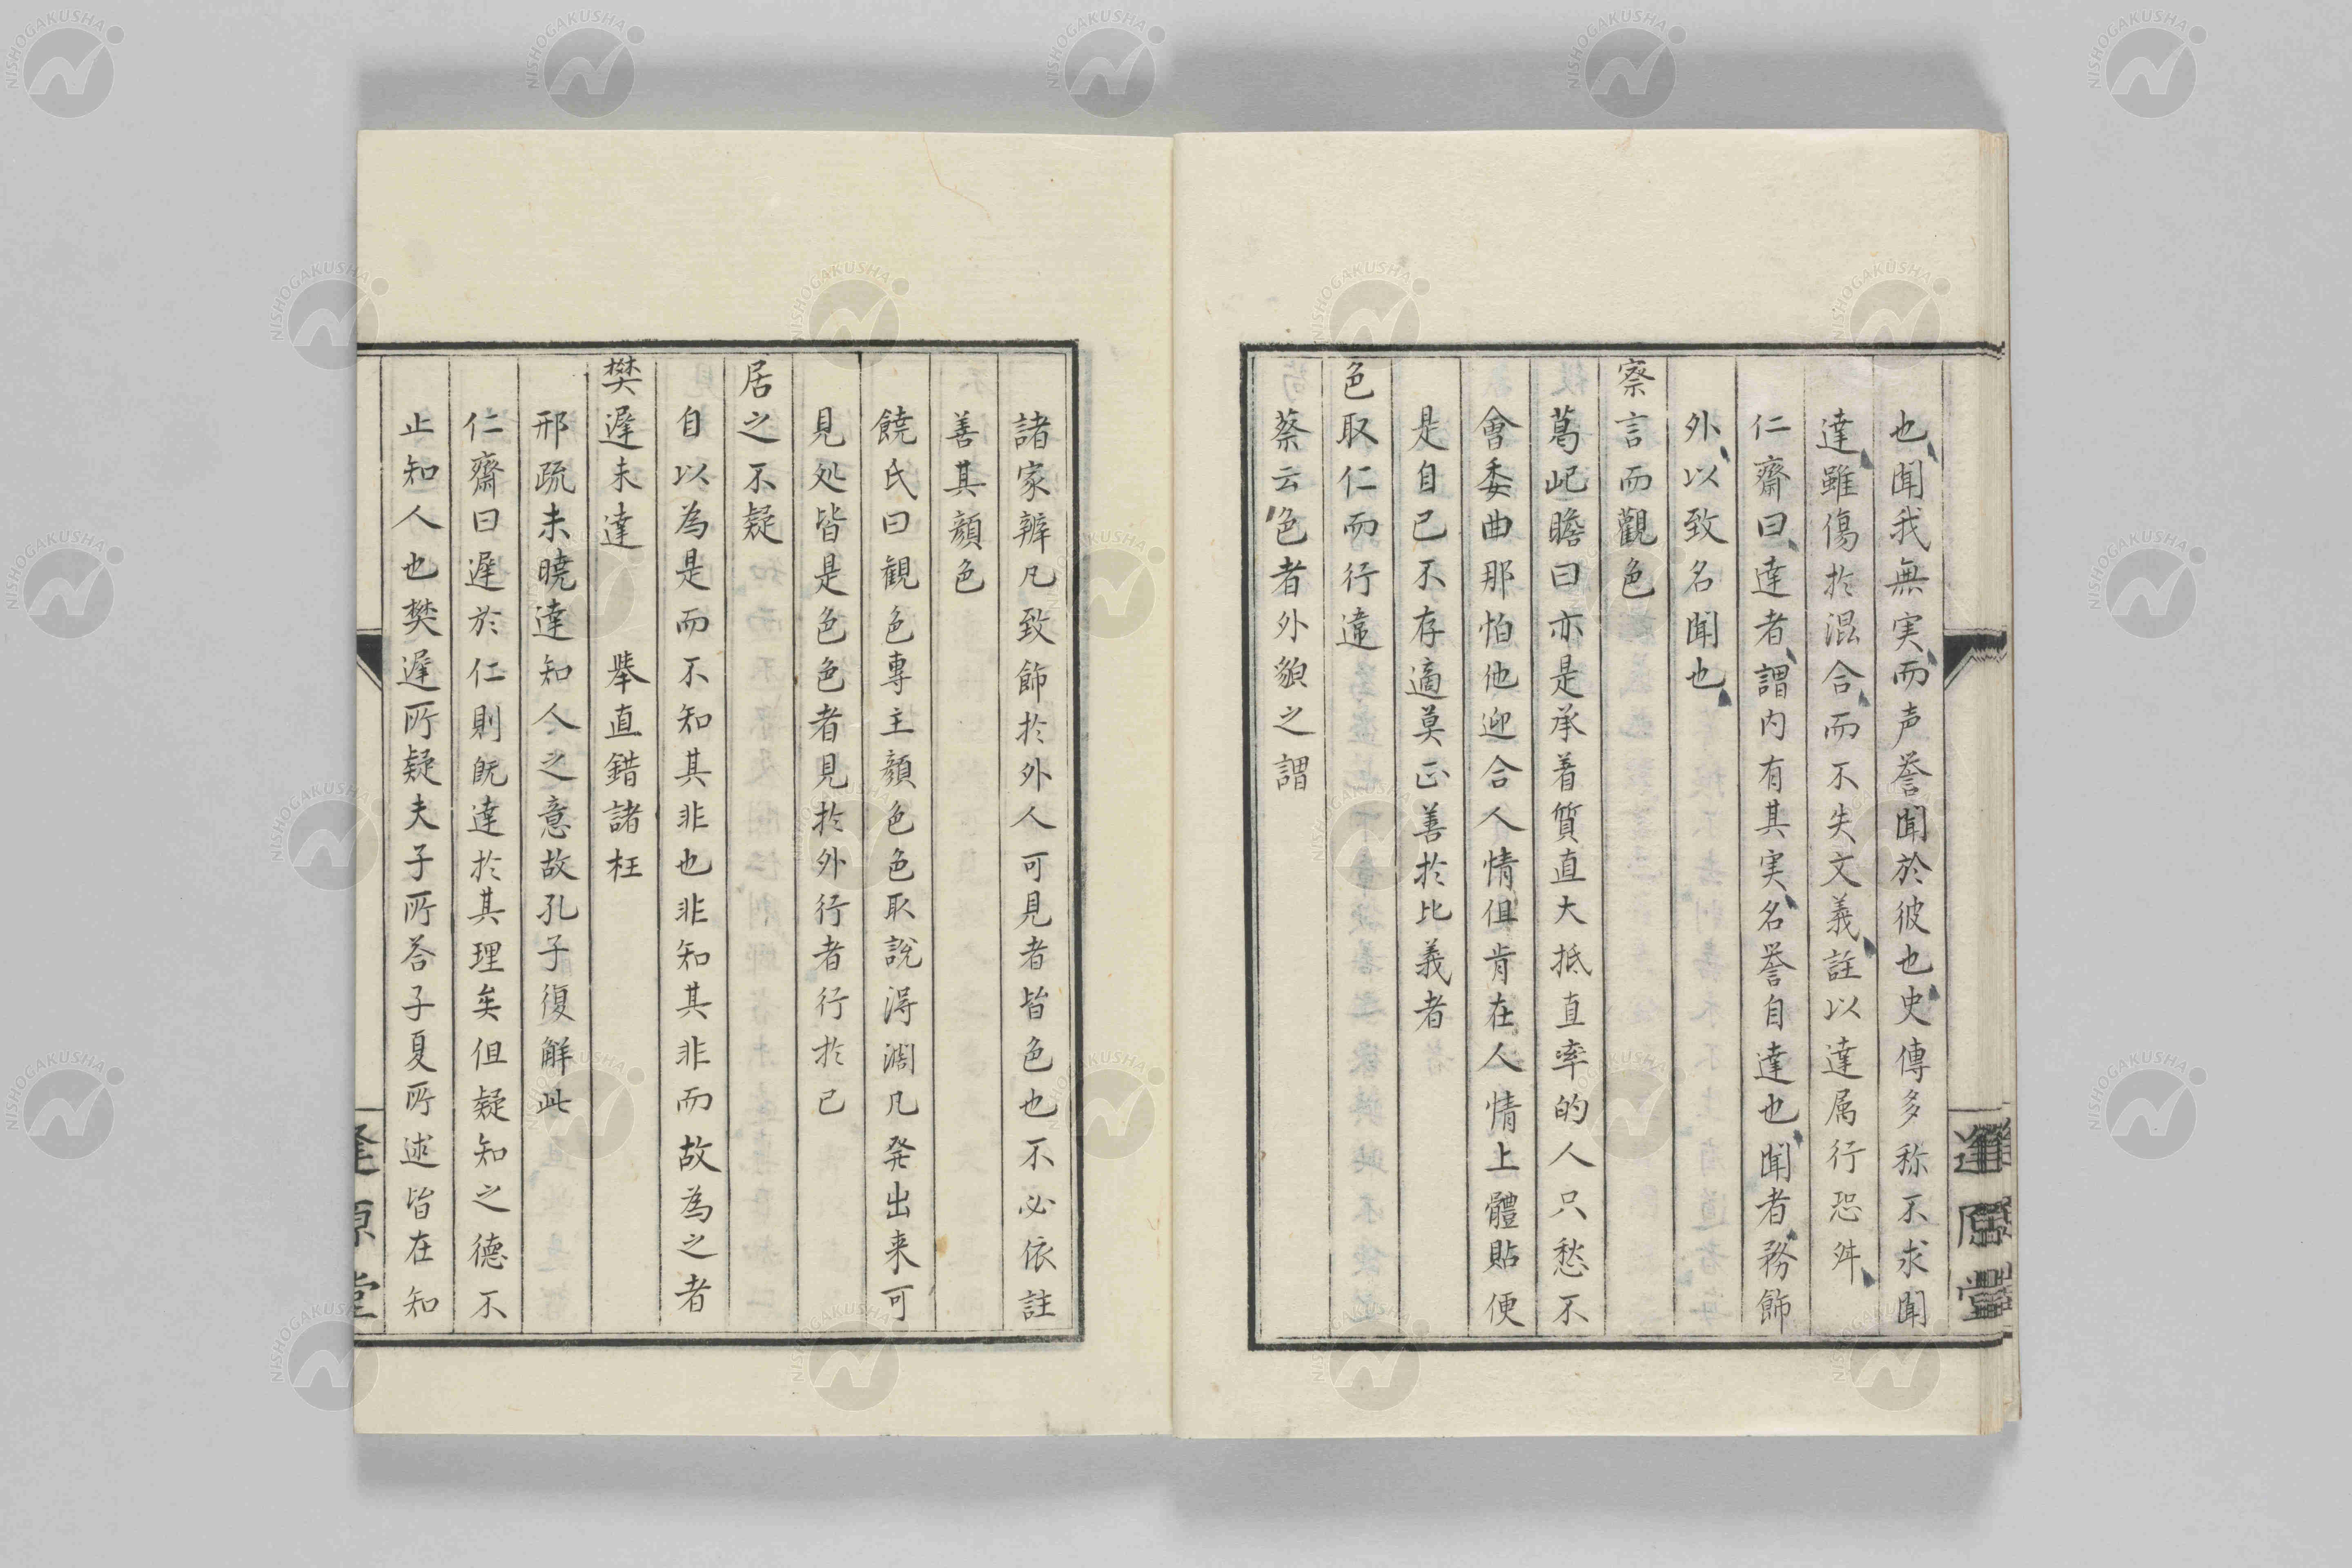 也聞我無実而声誉聞於彼也史傳多称不求聞
達雖傷於混合而不失文義註以達属行恐舛
仁齋曰達者謂内有其実名誉自達也聞者務飾
外以致名聞也
察言而觀色
葛屺瞻曰亦是承着質直大抵直率的人只愁不
會委曲那怕他迎合人情但肯在人情上體貼便
是自己不存適莫正善於比義者
色取仁而行違
蔡云色者外貌之謂
諸家辨凡致飾於外人可見者皆色也不必依註
善其顔色
饒氏曰観色專主顔色色取說得濶凡発出来可
見処皆是色色者見於外行者行於己
居之不疑
自以為是而不知其非也非知其非而故為之者
樊遲未達　舉直錯諸枉
邢疏未曉達知人之意故孔子復解此
仁齋曰遲於仁則既達於其理矣但疑知之德不
止知人也樊遲所疑夫子所答子夏所述皆在知
逢原堂
NISHOGAKUSHA